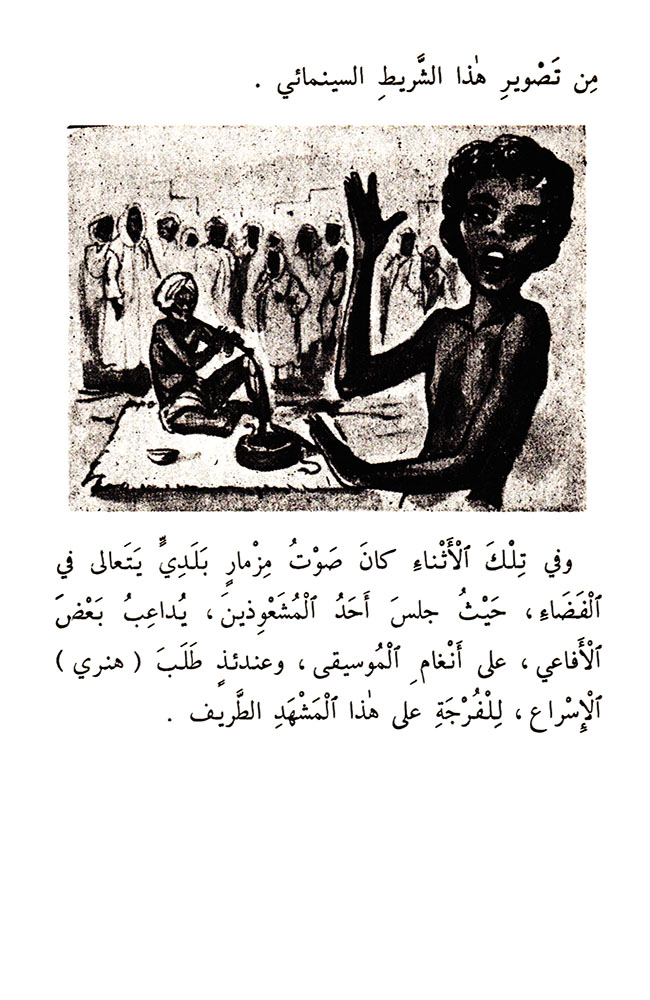 مِن تَصْويرِ هٰذا الشَّريطِ السينمائي .
وفي تِلْكَ ٱلْأَثْناءِ كانَ صَوْتُ مِزْمارٍ بَلَدِيٍّ يَتَعالى في
ٱلْفَضَاءِ ، حَيْثُ جلسَ أَحَدُ ٱلْمُشَعْوِذينَ ، يُداعِبُ بَعْضَ
ٱلْأَفاعي ، على أَنْغامِ ٱلْمُوسيقى ، وعندئذٍ طَلَبَ ( هنري )
ٱلْإِسْراع ، لِلْفُرْجَةِ على هٰذا ٱلْمَشْهَدِ الطَّريف .